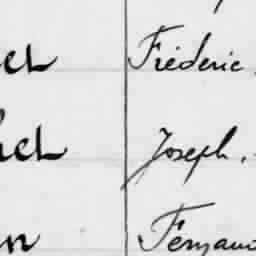 el Fréderic
hel Joseph.
n Fernand